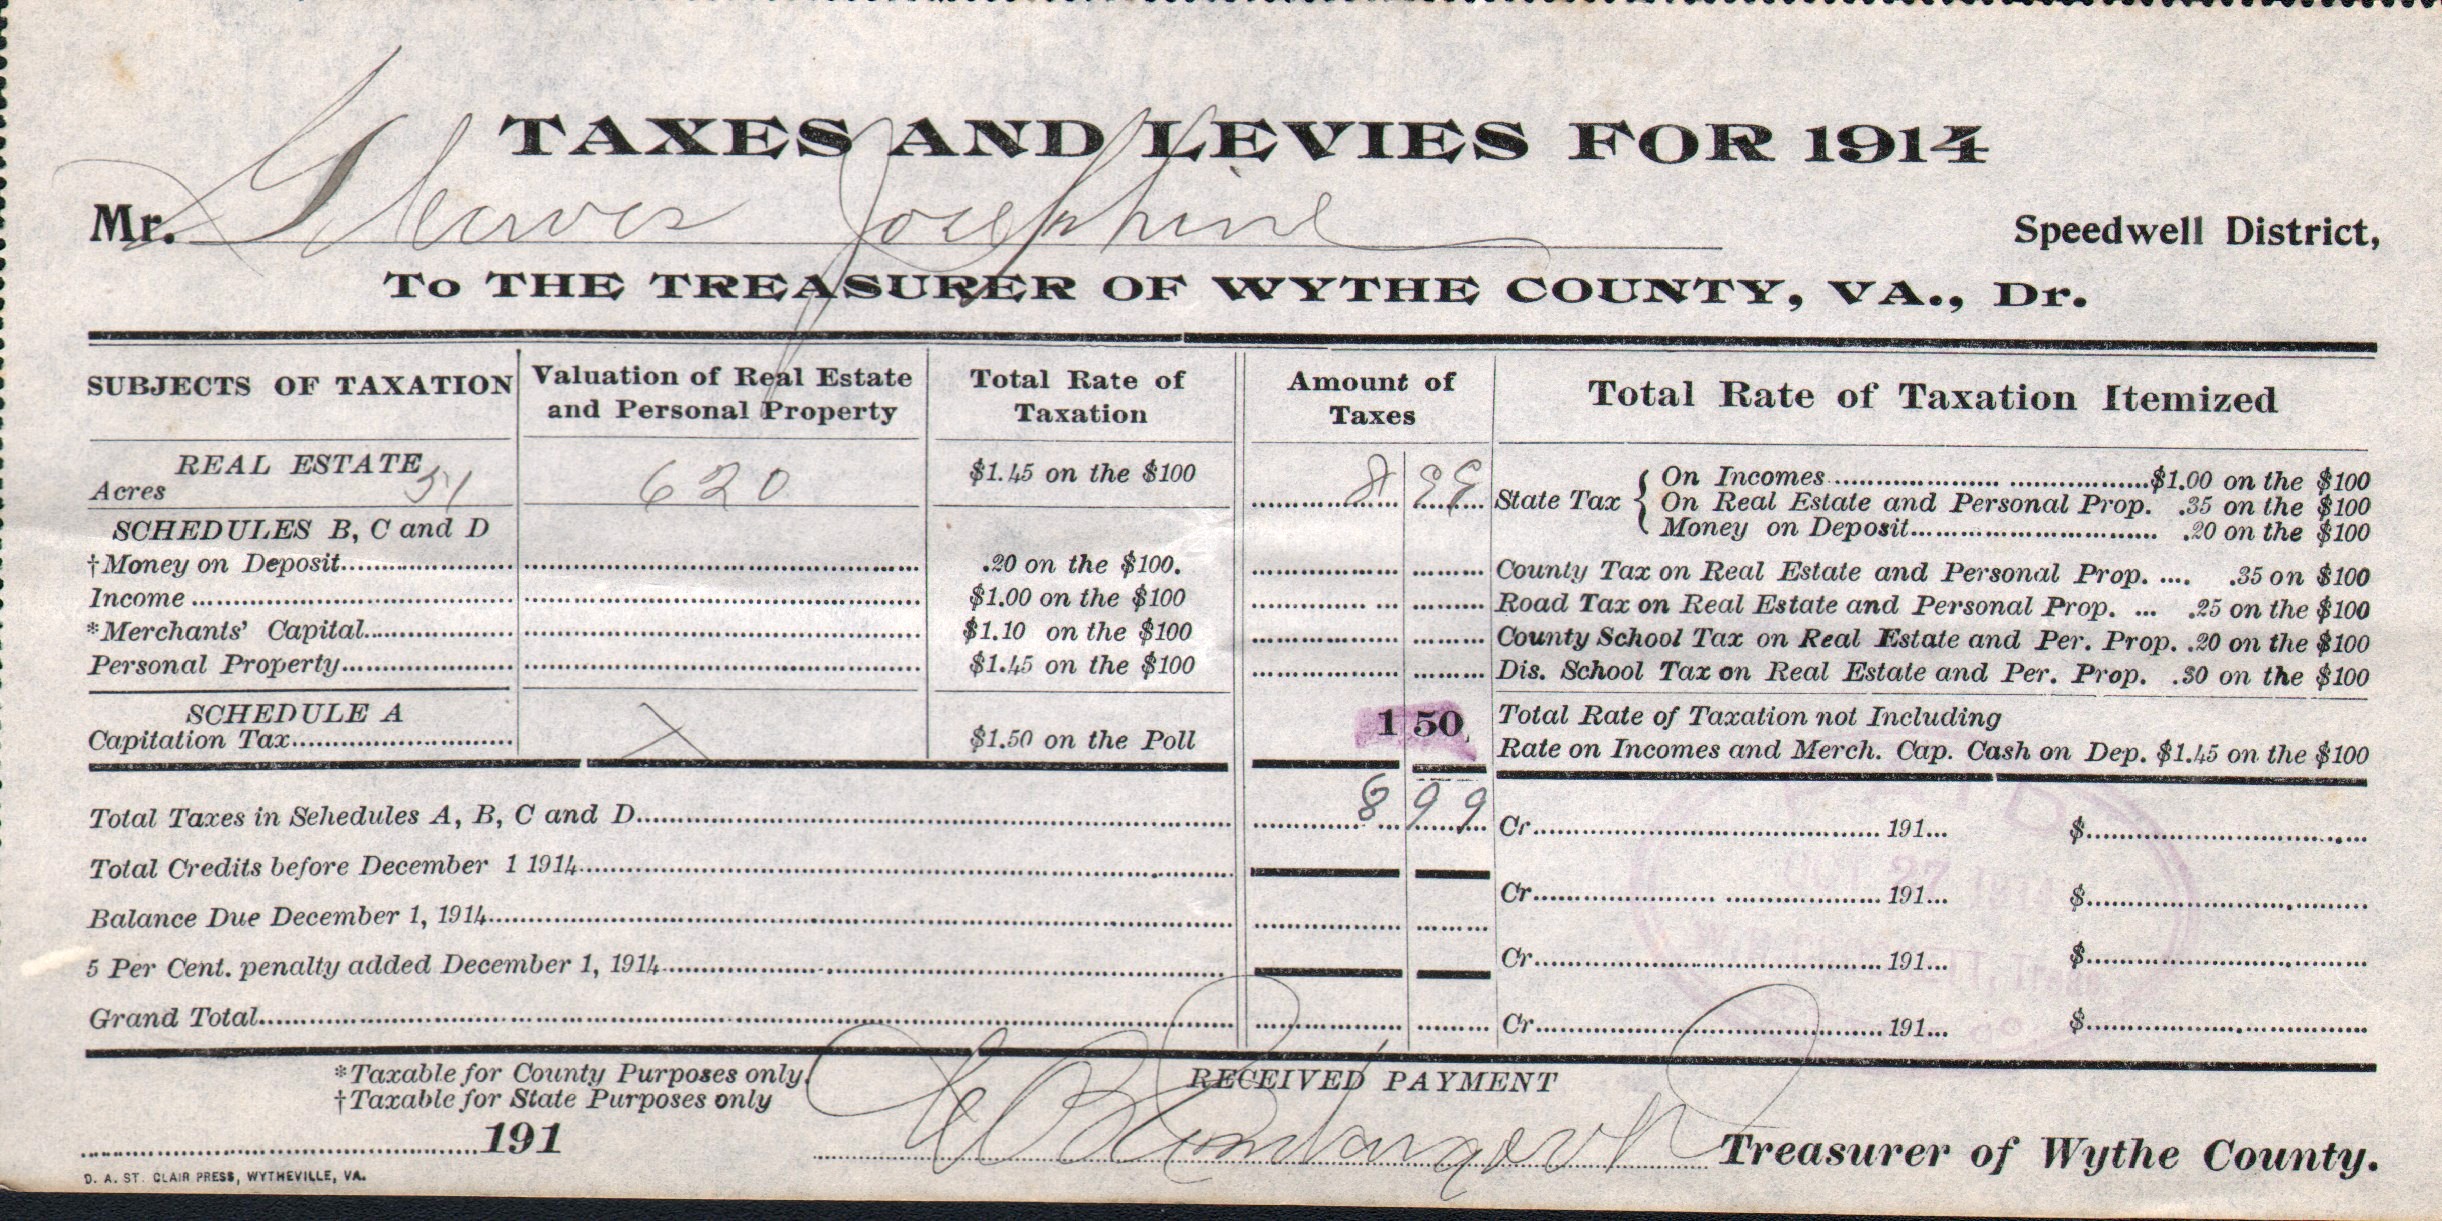 TAXES AND LEVIES FOR 1914
Mr. Cleaves Josephine Speedwell District,
To THE TREASURER OF WYTHE COUNTY, VA., Dr.
SUBJECTS OF TAXATION Valuation of Real Estate and Personal Property Total Rate of Taxation Amount of Taxes Total Rate of Taxation Itemized
REAL ESTATE
Acres 51 620 $1.45 on the $100 8 99
State Tax { On Incomes $1.00 on the $100
On Real Estate and Personal Prop. .35 on the $100
Money on Deposit .20 on the $100
SCHEDULES B, C and D
†Money on Deposit .20 on the $100. County Tax on Real Estate and Personal Prop. .35 on $100
Income $1.00 on the $100 Road Tax on Real Estate and Personal Prop. .25 on the $100
*Merchants' Capital $1.10 on the $100 County School Tax on Real Estate and Per. Prop. .20 on the $100
Personal Property $1.45 on the $100 Dis. School Tax on Real Estate and Per. Prop. .30 on the $100
SCHEDULE A Total Rate of Taxation not Including
Capitation Tax X $1.50 on the Poll 1 50 Rate on Incomes and Merch. Cap. Cash on Dep. $1.45 on the $100
Total Taxes in Sehedules A, B, C and D 8 99 Cr. 191... $
Total Credits before December 1 1914 Cr. 191... $
Balance Due December 1, 1914
5 Per Cent. penalty added December 1, 1914 Cr. 191... $
Grand Total Cr. 191... $
*Taxable for County Purposes only. RECEIVED PAYMENT
†Taxable for State Purposes only
191 Treasurer of Wythe County.
D. A. ST. CLAIR PRESS, WYTHEVILLE, VA.